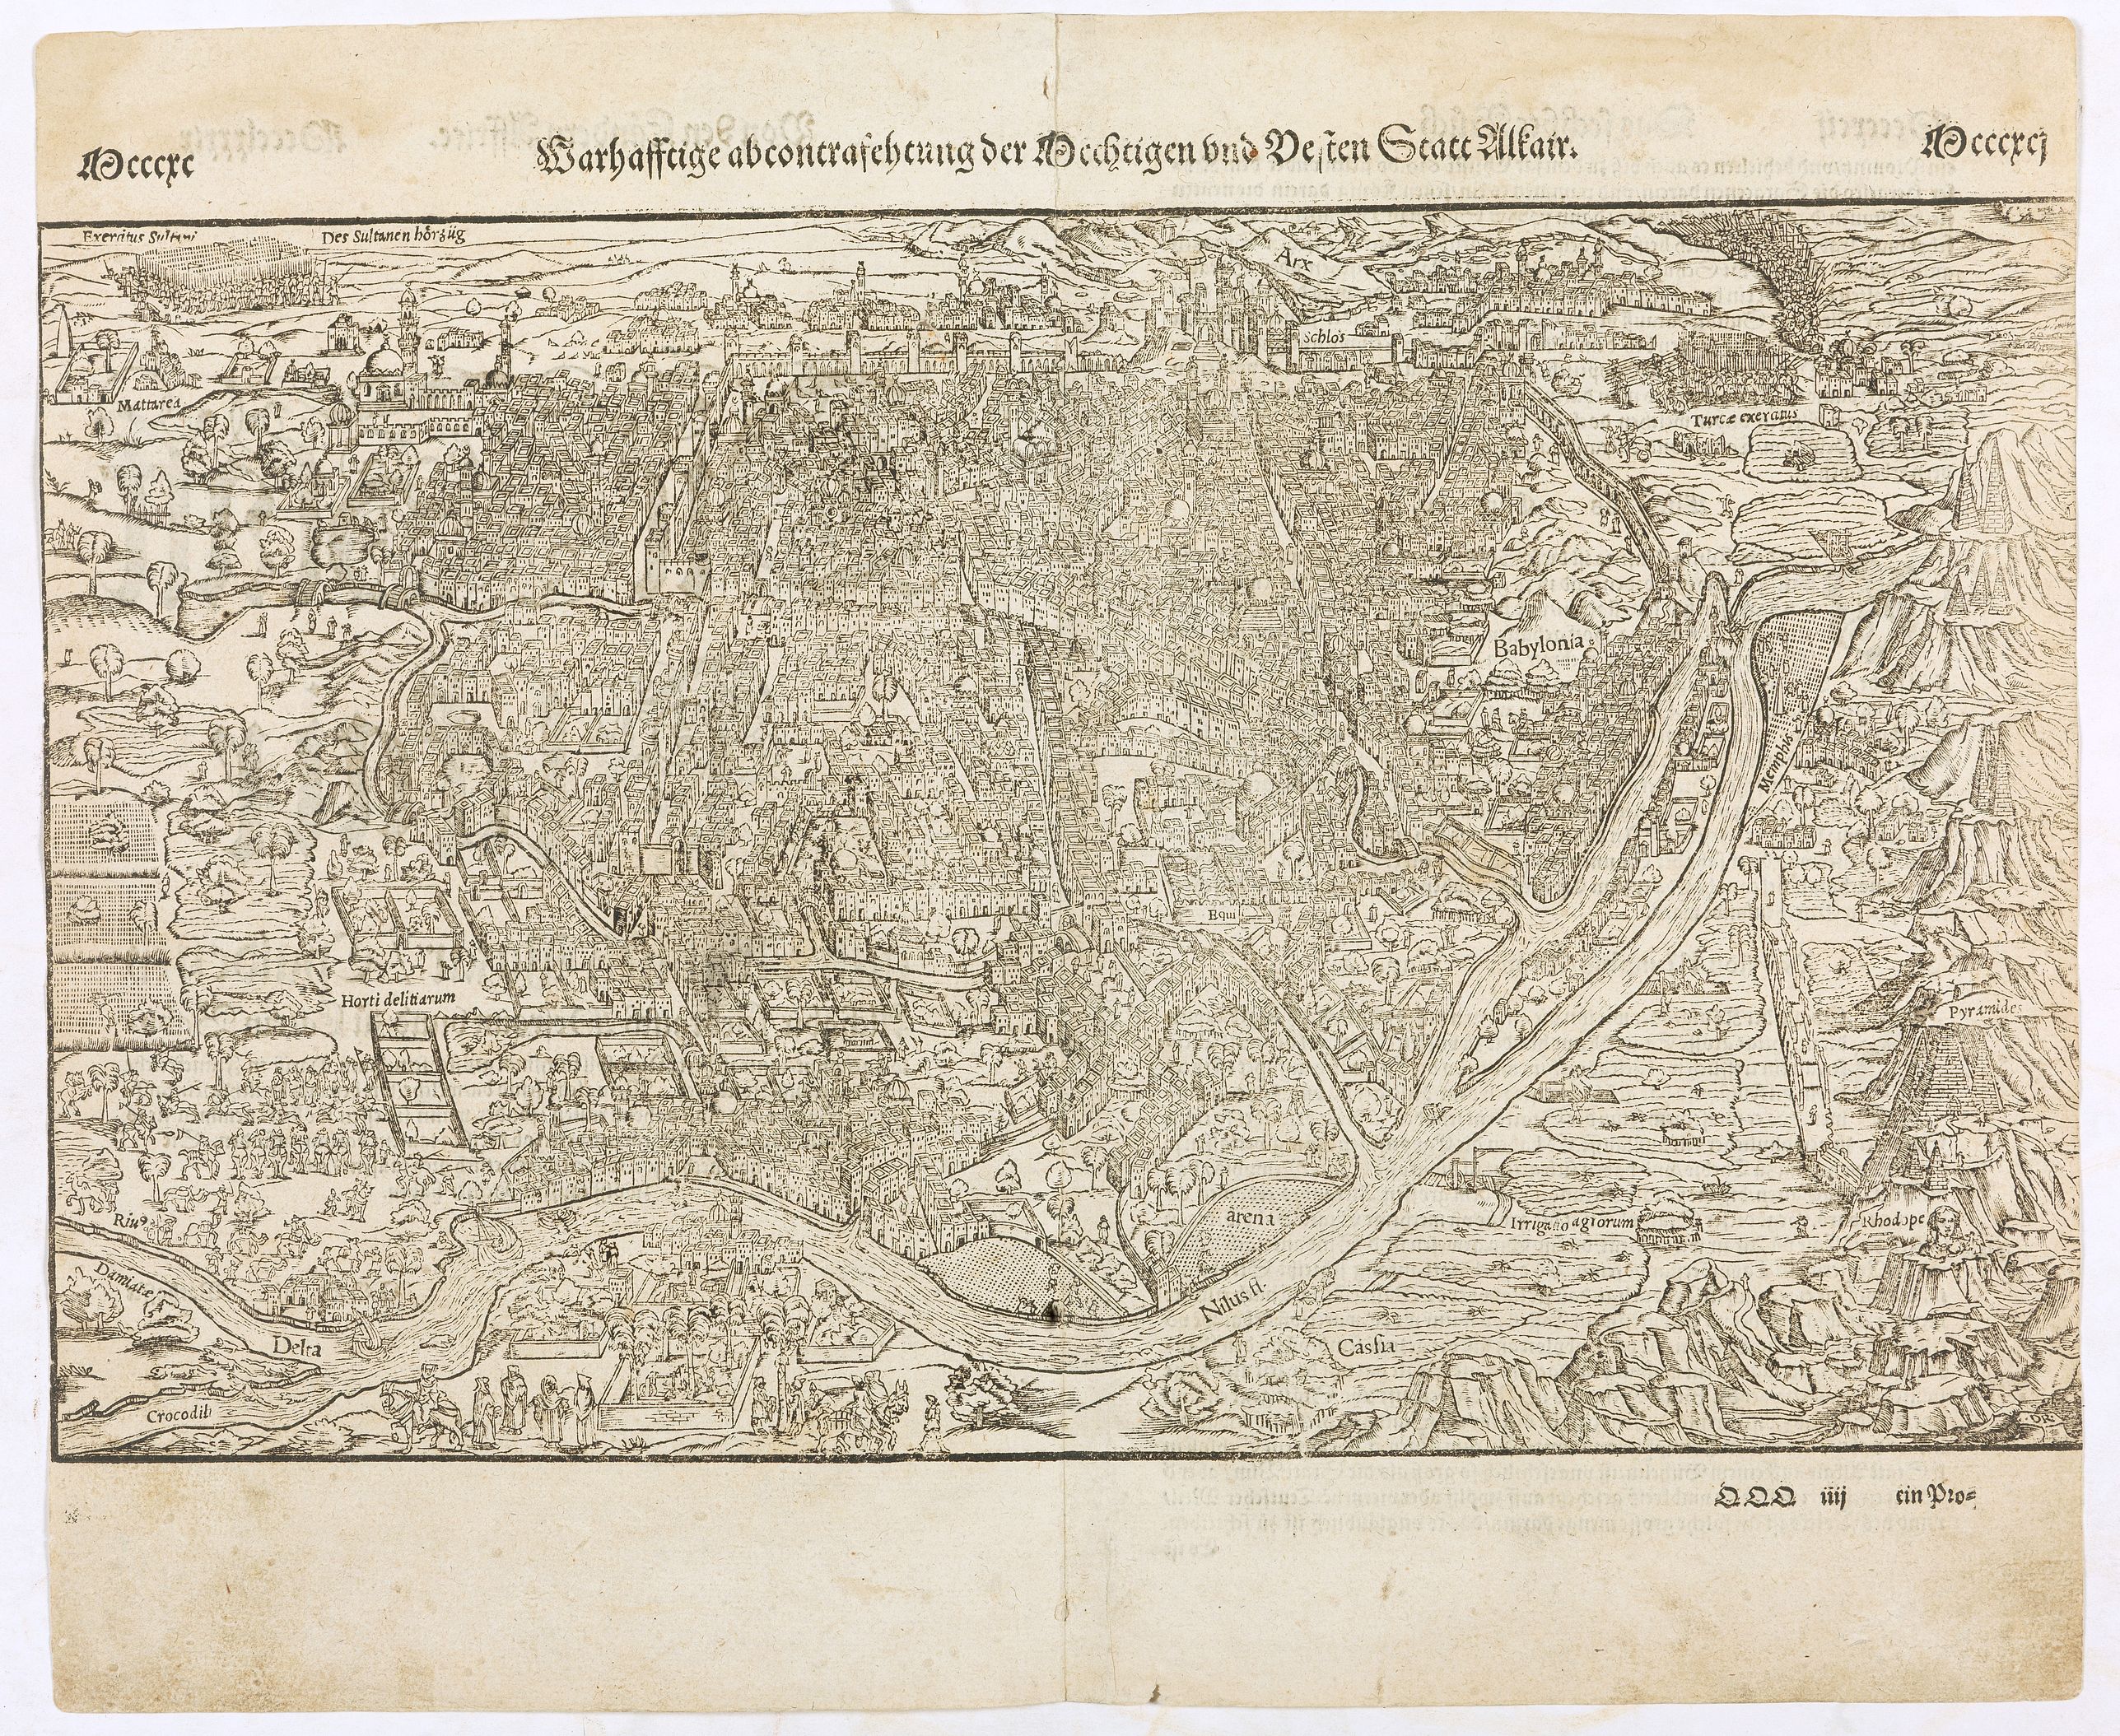 Mcccxc
Warhafftige abcontrafehtung der Mechtigen vnd Vesten Statt Alkair.
Mcccxcj
Exercitus Sultani
Des Sultanen hörzüg
Arx
Schlos
Mattarea
Turcæ exercitus
Babylonia
Memphis
Equi
Horti delitiarum
Pyramides
arena
Rius
Irrigatio agrorum
Rhodope
Damiate
Nilus fl.
Delta
Cassia
Crocodili
OOO iiij ein Pro=